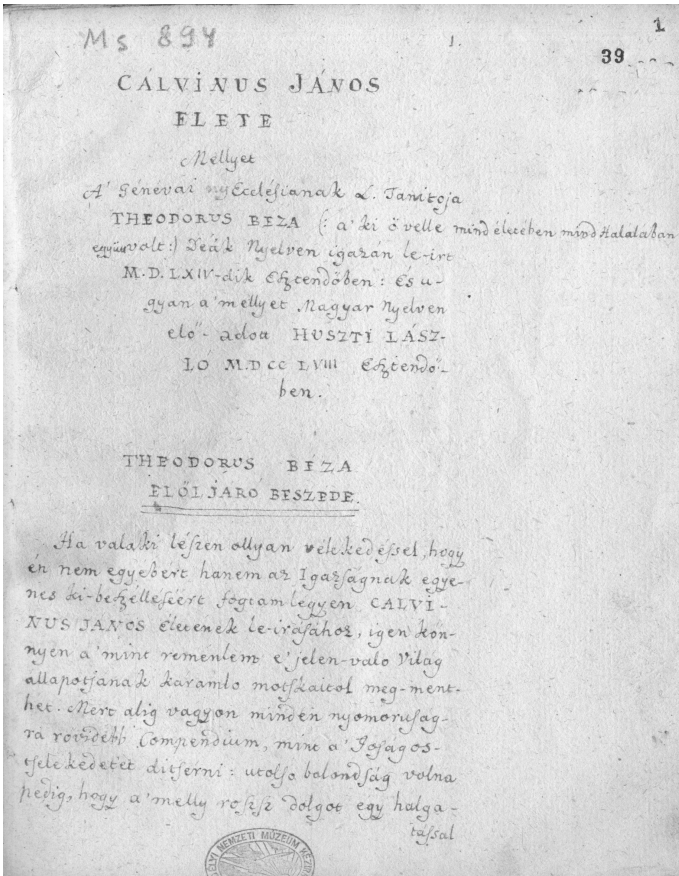 Ms 894
1.
1
39
CALVINUS JÁNOS
ELETE
Mellyet
A' Génévai Ecclésianak L. Tanitoja
THEODORUS BEZA (: a' ki ő velle mind életében mind Halalában
együtt volt:) Deák Nyelven igazán le-irt
M.D.LXIV-dik Esztendőben: És u-
gyan a' mellyet Magyar Nyelven
elő-adott HUSZTI LÁSZ-
LO M.DCC LVIII Esztendő-
ben.
THEODORUS BÉZA
ELŐLJÁRO BESZEDE.
Ha valaki lészen ollyan vélekedéssel, hogy
én nem egyebért hanem az Igazságnak egye-
nes ki-beszelleséért fogtam légyen CALVI-
NUS JANOS Életenek le-irásához, igen kön-
nyén a' mint reménlem e' jelen-valo Világ
állapotjanak karamlo motskaitol meg-ment-
het. Mert alig vagyon minden nyomoruság-
ra rövidebb Compendium, mint a' Joságos-
tselekedetet ditsérni: utolso bolondság volna
pedig, hogy a' melly rossz dolgot egy halga-
tással
NEMZETI MÚZEUM